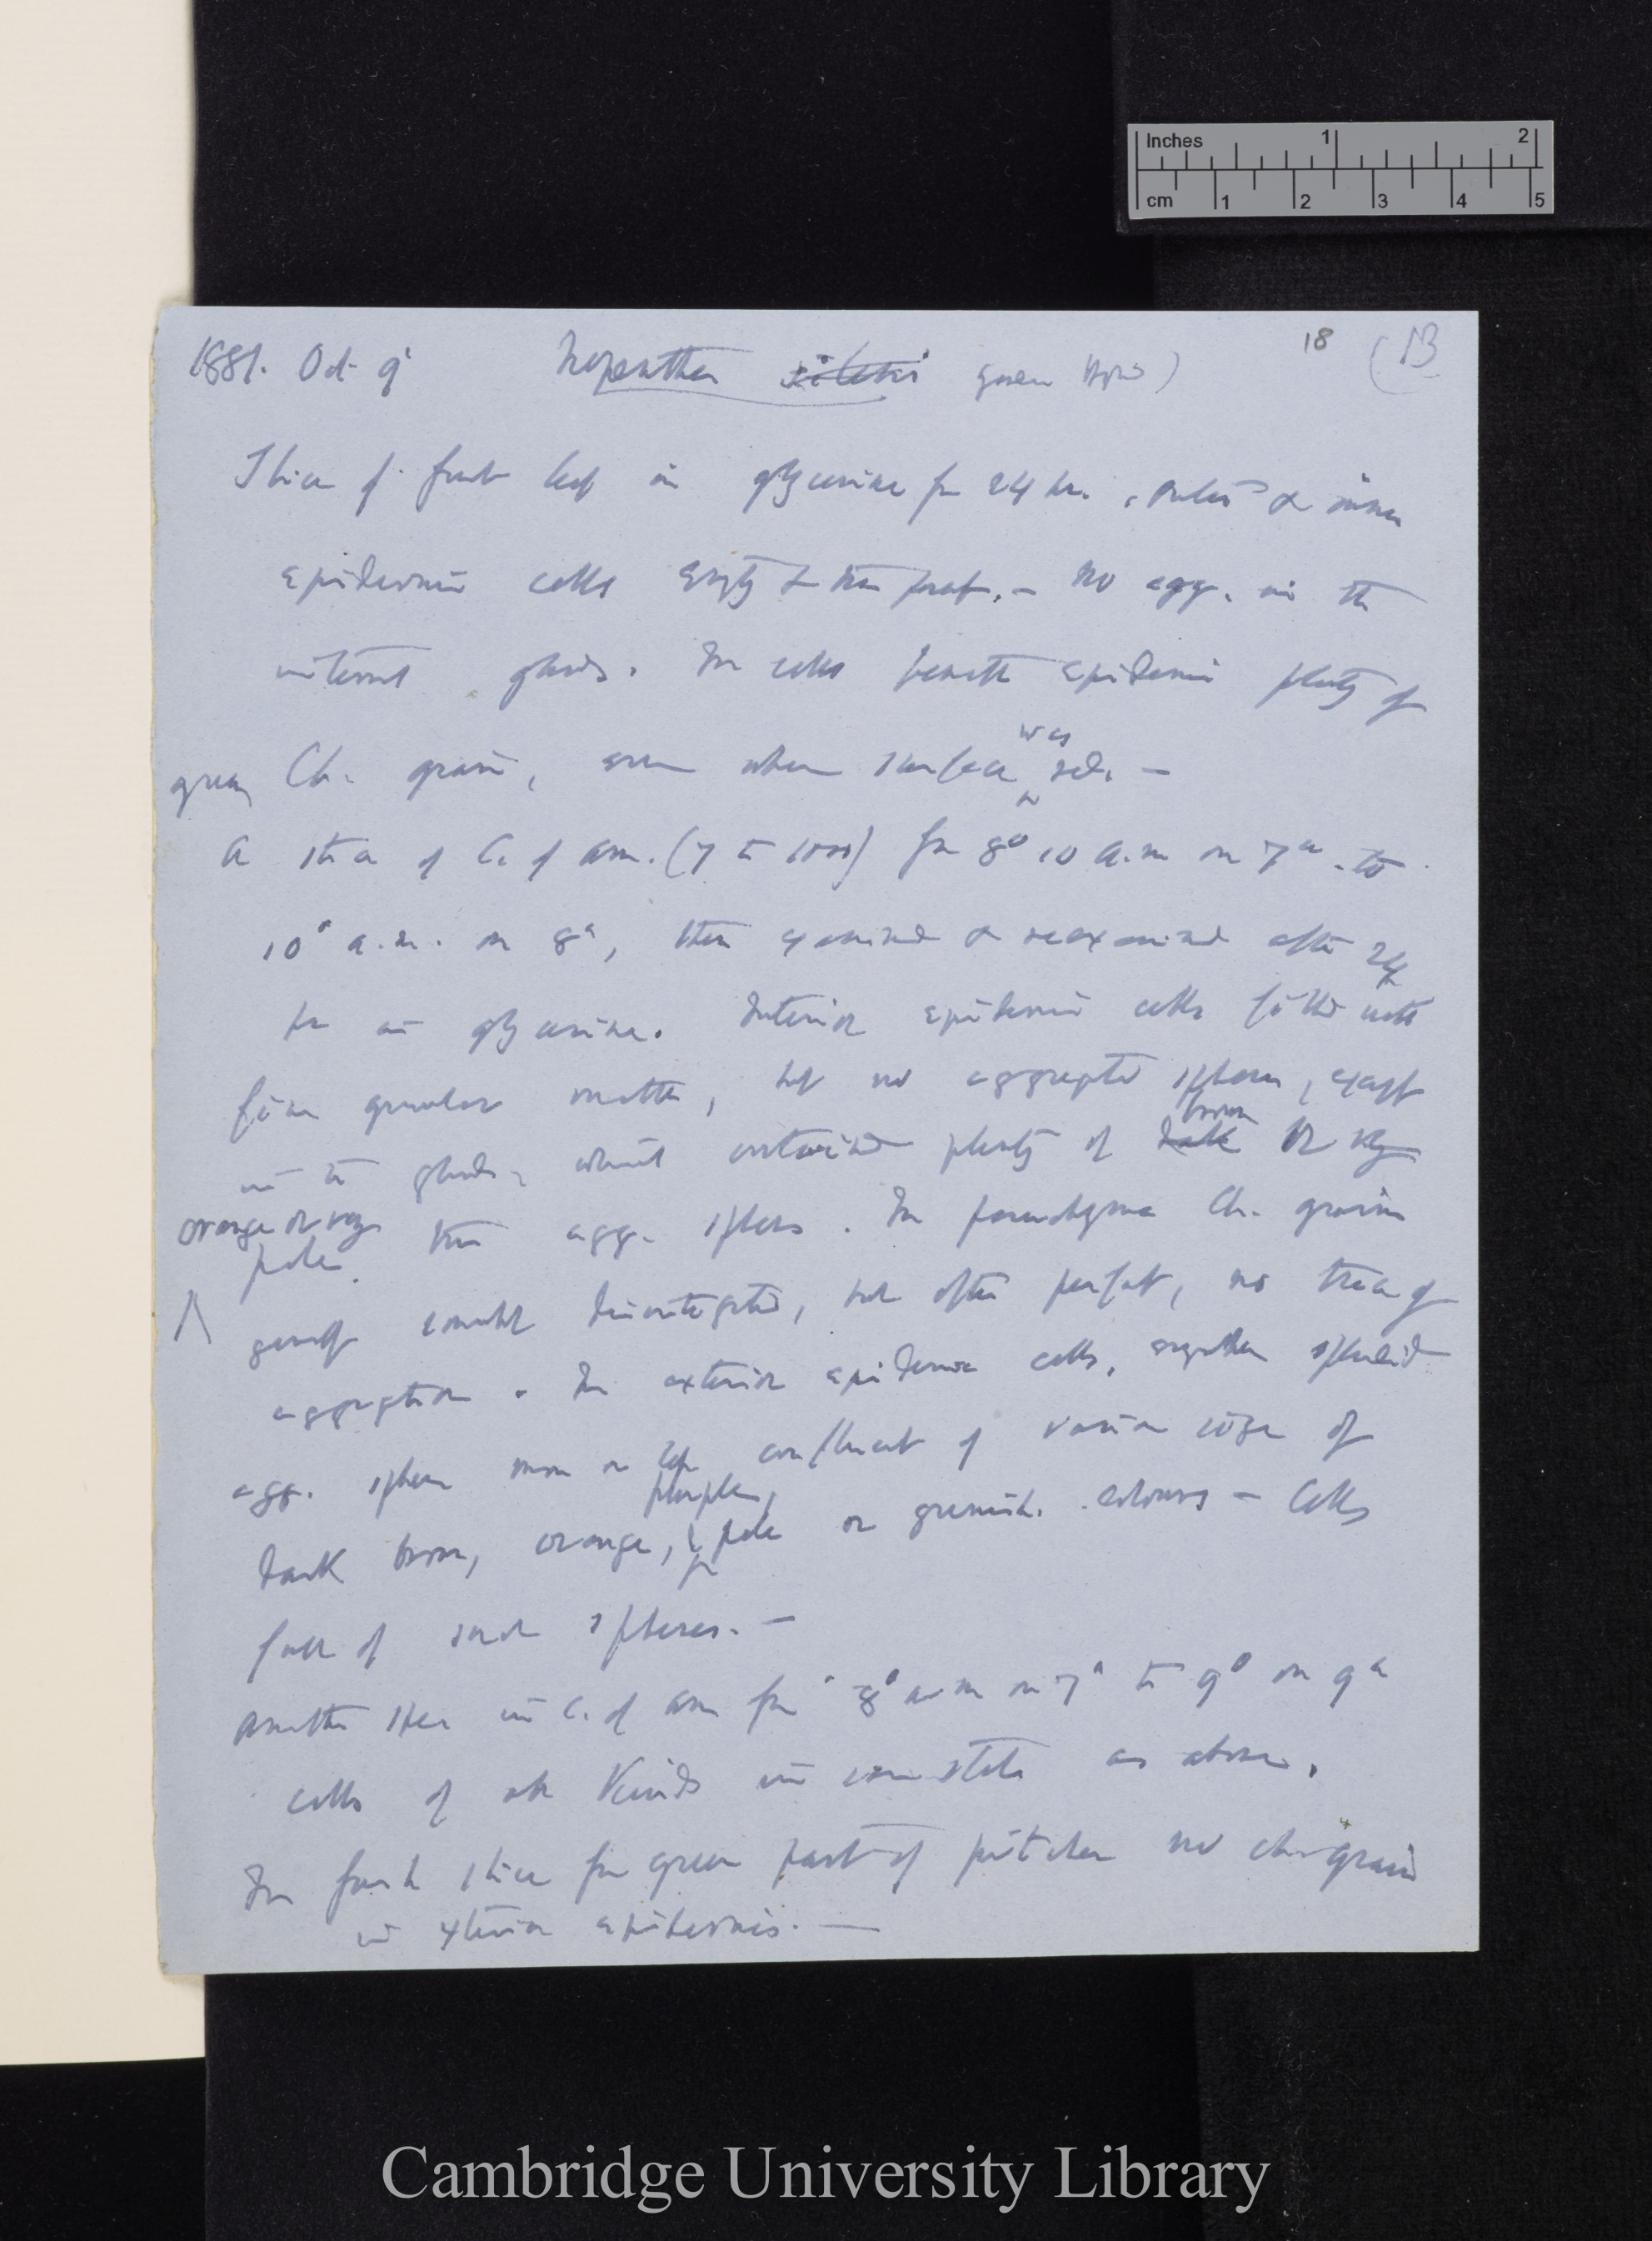 Inches 1 2
cm 1 2 3 4 5
18 (13
1881. Oct. 9 Nepenthes
Slice of fresh leaf in glycerine for 24 hrs. outer & inner
epidermic cells empty & transparent. – no agg. in the
internal glands. In cells beneath epidermis plenty of
green Ch. grains, even when surface was red. –
A slice of C. of Am. (7 to 1000) for 8° 10 a.m on 7th to
10° a.m. on 8th, then examined & reexamined after 24
hr in glycerine. Interior epidermic cells filled with
fine granular matter, but no aggregated spheres, except
in the glands, which contained plenty of brown or
orange or very
pale agg. spheres. In parenchyma Ch. grains
somewhat disintegrated, but often perfect, no trace of
aggregation. In exterior epidermic cells, splendid
agg. spheres more or less confluent of various sizes of
purple,
dark brown, orange, pale or greenish colours – Cells
full of such spheres. –
Another slice in C. of Am for 8° a.m on 7th to 9° on 9th
cells of all kinds in same state as above.
In fresh slice from green part of pitcher no ch. grains
in exterior epidermis. —
Cambridge University Library